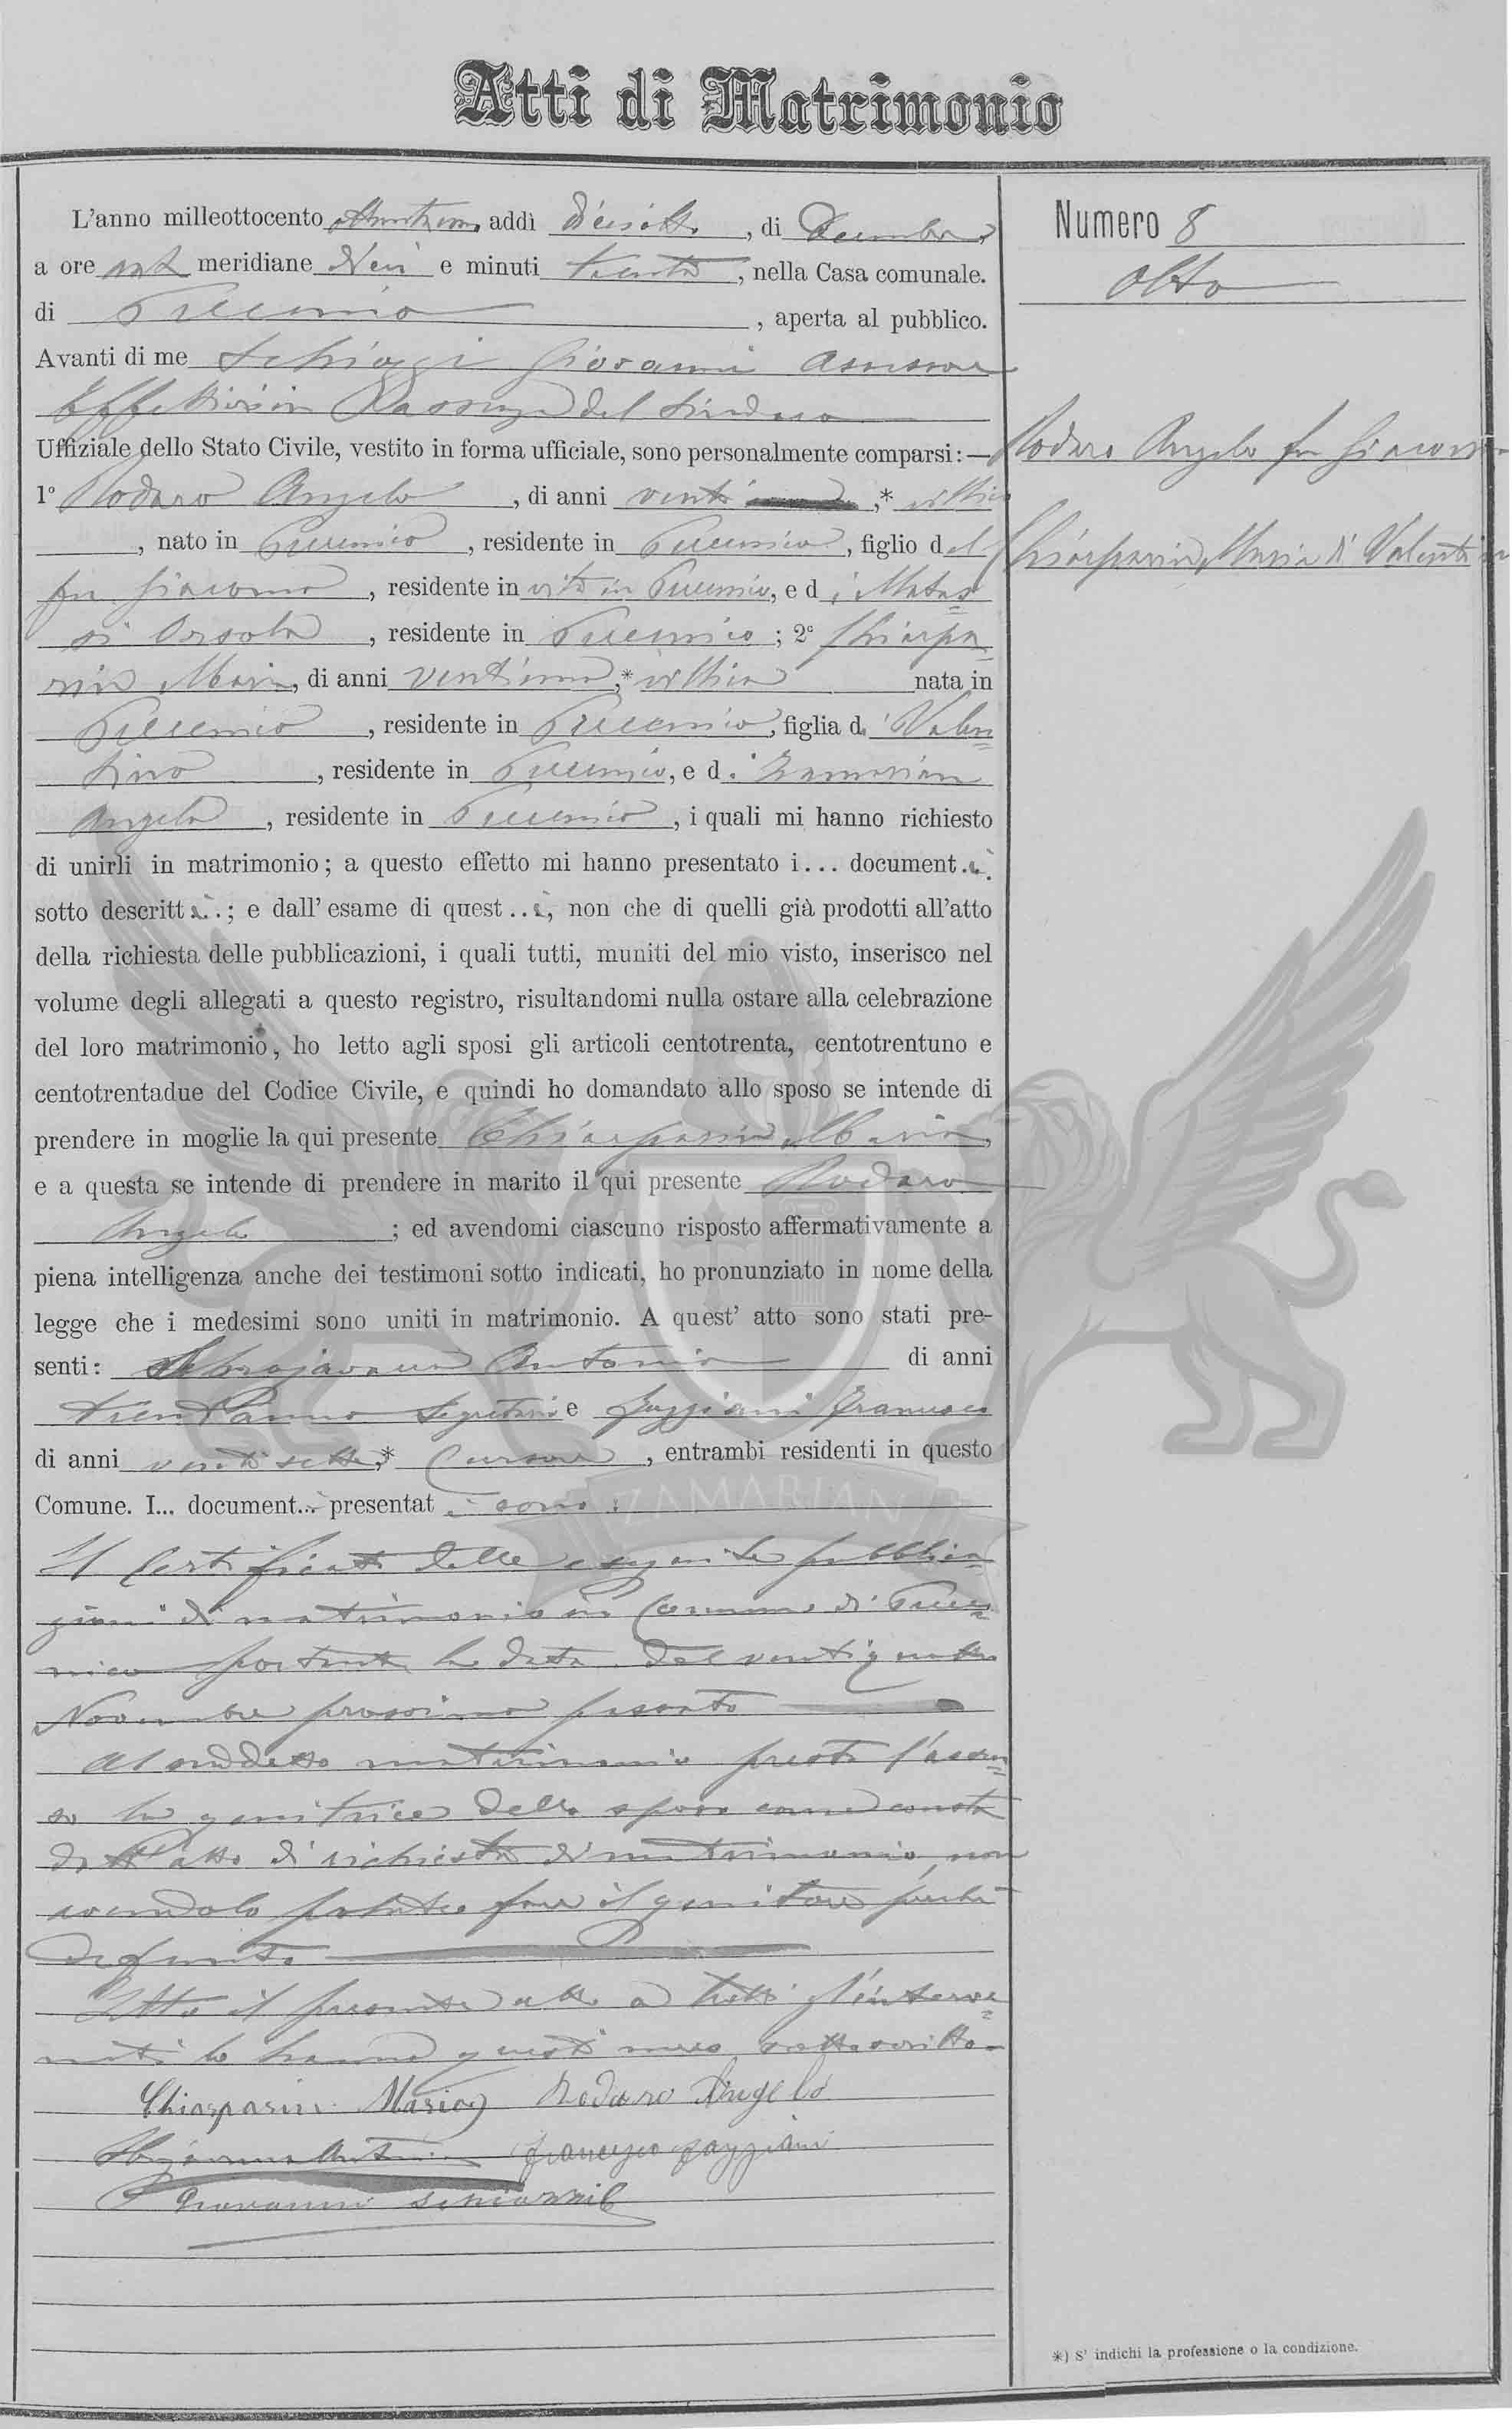 Atti di Matrimonio
L'anno milleottocento addì dieciotto, di Decembre,
a ore ant meridiane dieci e minuti trenta, nella Casa comunale.
di Precenico, aperta al pubblico.
Avanti di me Giovanni Assessore
Effettivo in del Sindaco
Uffiziale dello Stato Civile, vestito in forma ufficiale, sono personalmente comparsi:—
1° Rodaro Angelo, di anni venti,* villico
, nato in Precenico, residente in Precenico, figlio del
fu Giacomo, residente in vita in Precenico, e di Matas=
si Orsola, residente in Precenico; 2° Chiarpa=
rin Maria, di anni ventiuno,* villica nata in
Precenico, residente in Precenico, figlia di Valen=
tino, residente in Precenico, e di Zamarian
Angela, residente in Precenico, i quali mi hanno richiesto
di unirli in matrimonio; a questo effetto mi hanno presentato i... document..i
sotto descritt i..; e dall'esame di quest..i, non che di quelli già prodotti all'atto
della richiesta delle pubblicazioni, i quali tutti, muniti del mio visto, inserisco nel
volume degli allegati a questo registro, risultandomi nulla ostare alla celebrazione
del loro matrimonio, ho letto agli sposi gli articoli centotrenta, centotrentuno e
centotrentadue del Codice Civile, e quindi ho domandato allo sposo se intende di
prendere in moglie la qui presente Chiarparin Maria,
e a questa se intende di prendere in marito il qui presente Rodaro
Angelo; ed avendomi ciascuno risposto affermativamente a
piena intelligenza anche dei testimoni sotto indicati, ho pronunziato in nome della
legge che i medesimi sono uniti in matrimonio. A quest' atto sono stati pre-
senti: Antonio di anni
trent'anno Segretario e Gazziani Francesco
di anni ventisette,* Cursore, entrambi residenti in questo
Comune. I... document...i presentat i sono:
ZAMARIAN
Il Certificato delle eseguite pubblica=
zioni di matrimonio in Comune di Prece=
nico portante la data del ventiquattro
Novembre prossimo passato
Al suddetto matrimonio prestò l'assen=
so la genitrice dello sposo come consta
dall'atto di richiesta di matrimonio, non
avendolo potuto fare il genitore perché
defunto.
Letto il presente atto a tutti gl'interve=
nuti lo hanno questi meco sottoscritto.
Chiarparin Maria Rodaro Angelo
Francesco Gazziani
Giovanni
Numero 8
Otto
Rodaro Angelo fu Giacomo
Chiarparin Maria di Valentino
*) S' indichi la professione o la condizione.